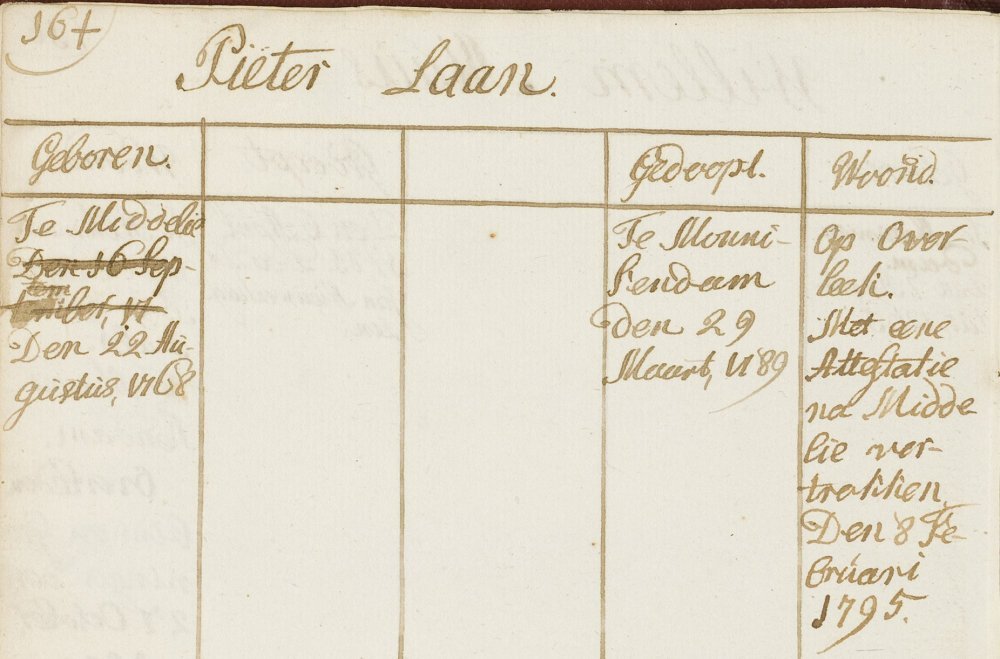 164
Pieter Laan.
Geboren.
Gedoopt.
Woond.
Te Middelie
Den 16 Sep-
tember, 17
Den 22 Au-
gustus, 1768
Te Monni-
kendam
den 29
Maart, 1789
Op Over-
leek.
Met eene
Attestatie
na Midde-
lie ver-
trokken
Den 8 Fe-
bruari
1795.